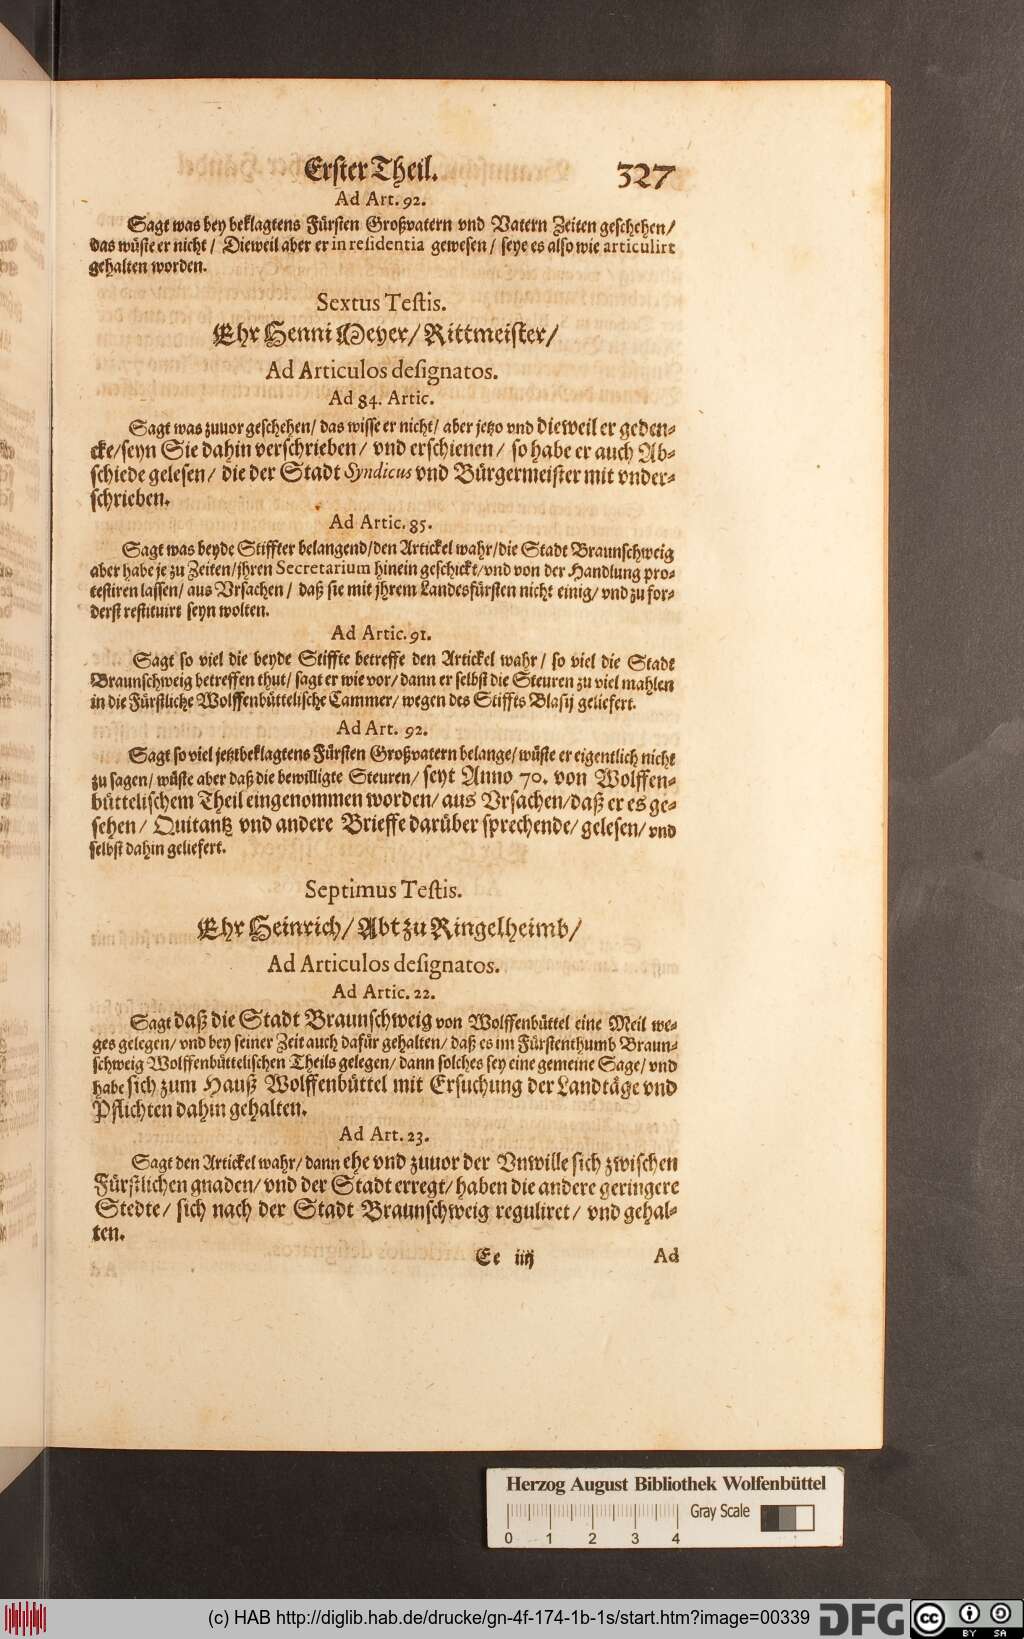 Erster Theil. 327
Ad Art. 92.
Sagt was bey beklagtens Fürsten Großvatern vnd Vatern Zeiten geschehen/
das wüste er nicht / Dieweil aber er in residentia gewesen / seye es also wie articulirt
gehalten worden.
Sextus Testis.
Ehr Henni Meyer/ Rittmeister/
Ad Articulos designatos.
Ad 84. Artic.
Sagt was zuuor geschehen/ das wisse er nicht/ aber jetzo vnd dieweil er geden-
cke/seyn Sie dahin verschrieben/ vnd erschienen/ so habe er auch Ab-
schiede gelesen/ die der Stadt Syndicus vnd Bürgermeister mit vnder-
schrieben.
Ad Artic. 85.
Sagt was beyde Stiffter belangend/den Artickel wahr/die Stadt Braunschweig
aber habe je zu Zeiten/jhren Secretarium hinein geschickt/vnd von der Handlung pro-
testiren lassen/ aus Vrsachen / daß sie mit jhrem Landesfürsten nicht einig/ vnd zu for-
derst restituirt seyn wolten.
Ad Artic. 91.
Sagt so viel die beyde Stiffte betreffe den Artickel wahr / so viel die Stadt
Braunschweig betreffen thut/ sagt er wie vor/ dann er selbst die Steuren zu viel mahlen
in die Fürstliche Wolffenbüttelische Cammer/ wegen des Stiffts Blasij geliefert.
Ad Art. 92.
Sagt so viel jetztbeklagtens Fürsten Großvatern belange/ wüste er eigentlich nicht
zu sagen/ wüste aber daß die bewilligte Steuren/ seyt Anno 70. von Wolffen-
büttelischem Theil eingenommen worden/ aus Vrsachen/daß er es ge-
sehen/ Quitantz vnd andere Brieffe darüber sprechende/ gelesen/ vnd
selbst dahin geliefert.
Septimus Testis.
Ehr Heinrich/ Abt zu Ringelheimb/
Ad Articulos designatos.
Ad Artic. 22.
Sagt daß die Stadt Braunschweig von Wolffenbüttel eine Meil we-
ges gelegen/ vnd bey seiner Zeit auch dafür gehalten/ daß es im Fürstenthumb Braun-
schweig Wolffenbüttelischen Theils gelegen/ dann solches sey eine gemeine Sage/ vnd
habe sich zum Hauß Wolffenbüttel mit Ersuchung der Landtäge vnd
Pflichten dahin gehalten.
Ad Art. 23.
Sagt den Artickel wahr/ dann ehe vnd zuuor der Vnwille sich zwischen
Fürstlichen gnaden/ vnd der Stadt erregt/ haben die andere geringere
Stedte/ sich nach der Stadt Braunschweig reguliret/ vnd gehal-
ten.
Ee iiij Ad
Herzog August Bibliothek Wolfenbüttel
Gray Scale
0 1 2 3 4
(c) HAB http://diglib.hab.de/drucke/gn-4f-174-1b-1s/start.htm?image=00339 DFG cc BY SA